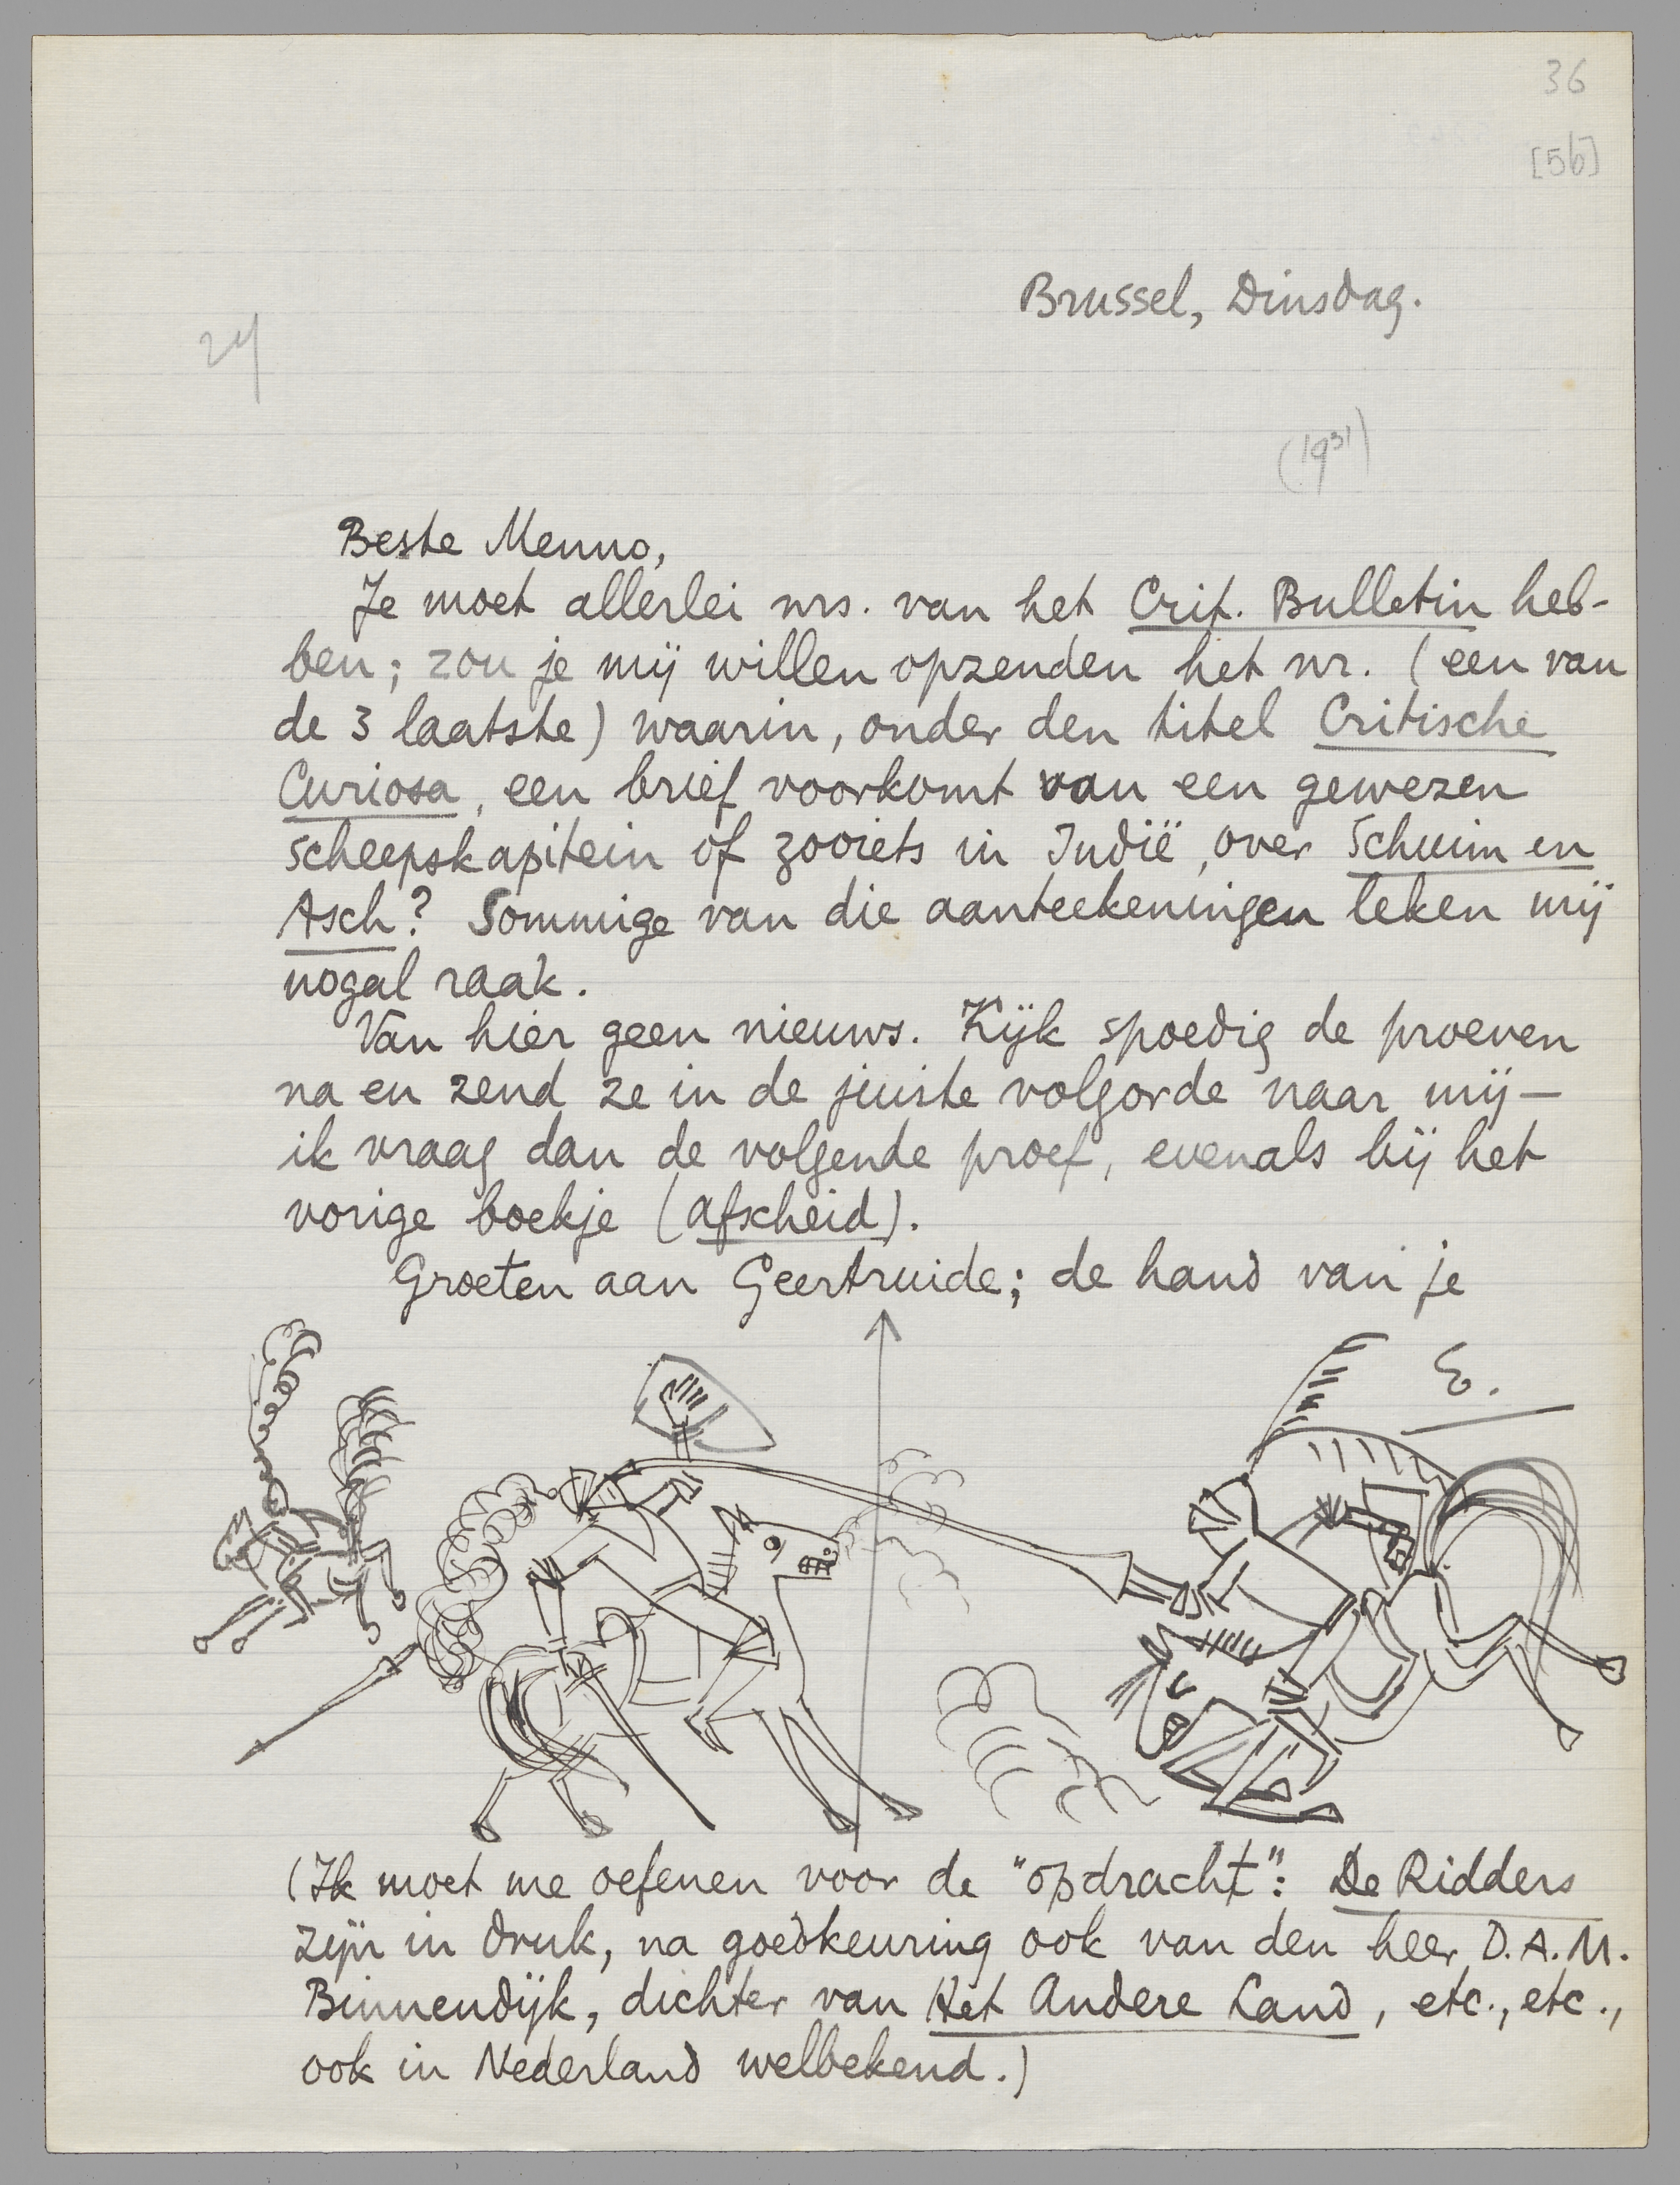 36
[5b]
Brussel, Dinsdag.
24
(1931)
Beste Menno,
Je moet allerlei nrs. van het Crit. Bulletin heb-
ben; zou je mij willen opzenden het nr. (een van
de 3 laatste) waarin, onder den titel Critische
Curiosa, een brief voorkomt van een gewezen
scheepskapitein of zooiets in Indië, over Schuim en
Asch? Sommige van die aanteekeningen leken mij
nogal raak.
Van hier geen nieuws. Kijk spoedig de proeven
na en zend ze in de juiste volgorde naar mij —
ik vraag dan de volgende proef, evenals bij het
vorige boekje (Afscheid).
Groeten aan Geertruide; de hand van je
E.
(Ik moet me oefenen voor de "opdracht": De Ridders
zijn in druk, na goedkeuring ook van den heer D.A.M.
Binnendijk, dichter van Het Andere Land, etc., etc.,
ook in Nederland welbekend.)